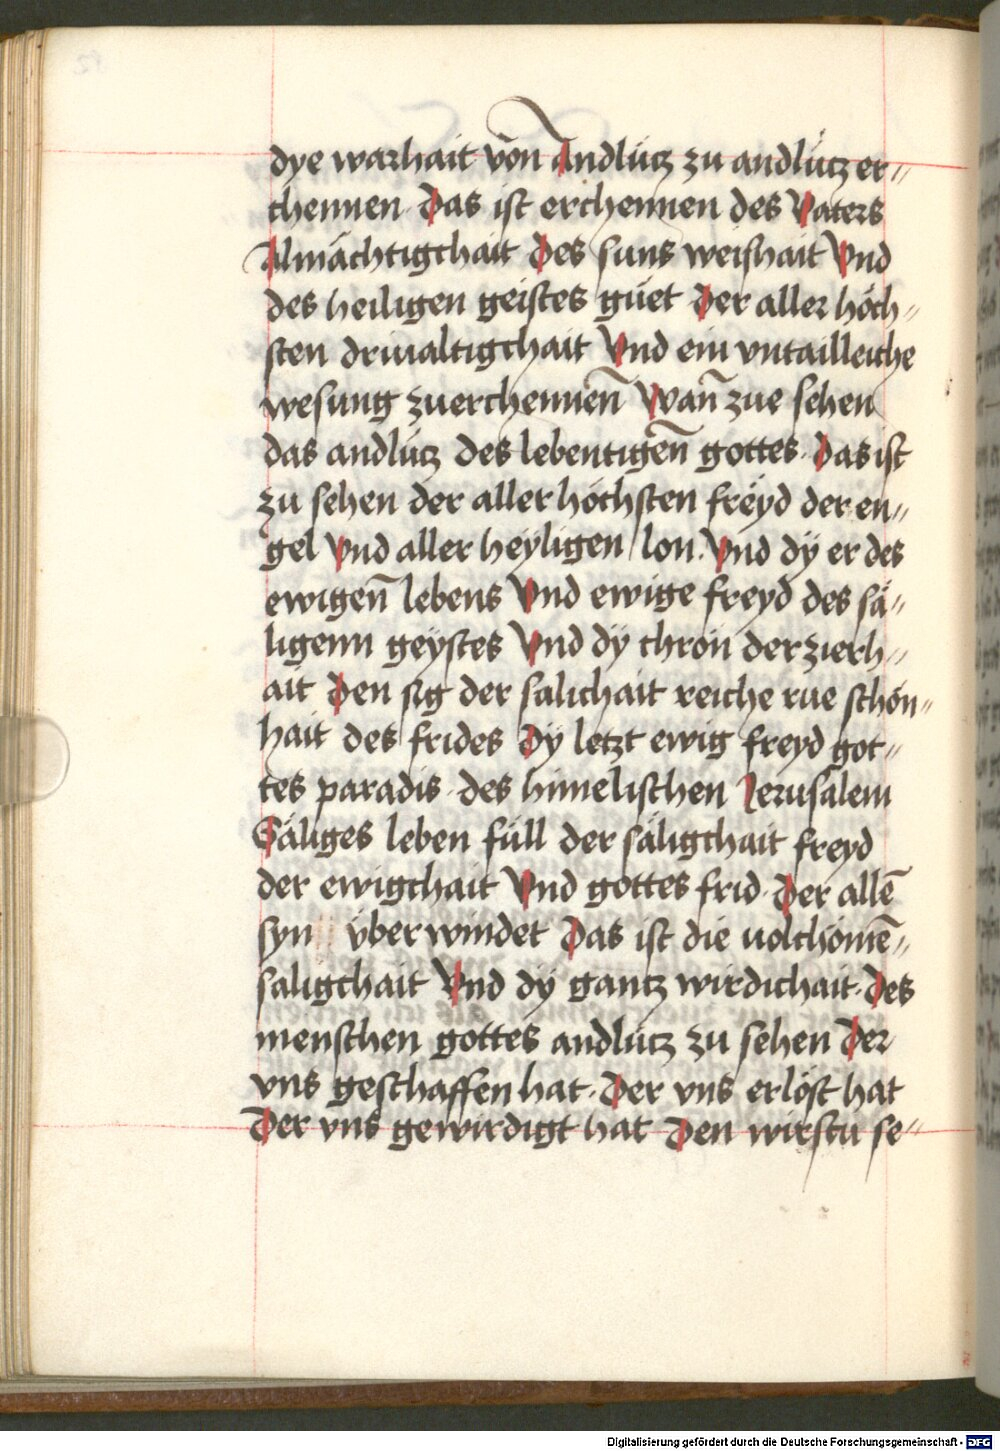 dye warhait von Andlütz zu andlütz er-
chennen Das ist erchennen des Vaters
Almächtigchait Des suns weishait Vnd
des heiligen geistes güet Der aller höch-
sten driualtigchait Vnd ein vntailleiche
wesung zuerchennen̄ Wan̄ zue sehen
das andlütz des lebentigen̄ gottes. Das ist
zu sehen der aller höchsten freyd der en-
gel Vnd aller heyligen lon. Vnd dÿ er des
ewigen̄ lebens Vnd ewige freyd des sä-
ligenn geÿstes Vnd dÿ chron der zierh-
ait Den sig der salichait reiche rue schön-
hait des frides Dÿ letzt ewig freyd got-
tes paradis. des himelischen Jerusalem
Säliges leben füll der säligchait freyd
der ewigchait Vnd gottes frid. Der allē
syn überwindet Das ist die volchomē-
saligchait Vnd dÿ gantz wirdichait. Des
menschen gottes andlütz zu sehen Der
vns geschaffen hat. Der vns erlöst hat
Der vns gewirdigt hat Den wirstu se-
Digitalisierung gefördert durch die Deutsche Forschungsgemeinschaft - DFG